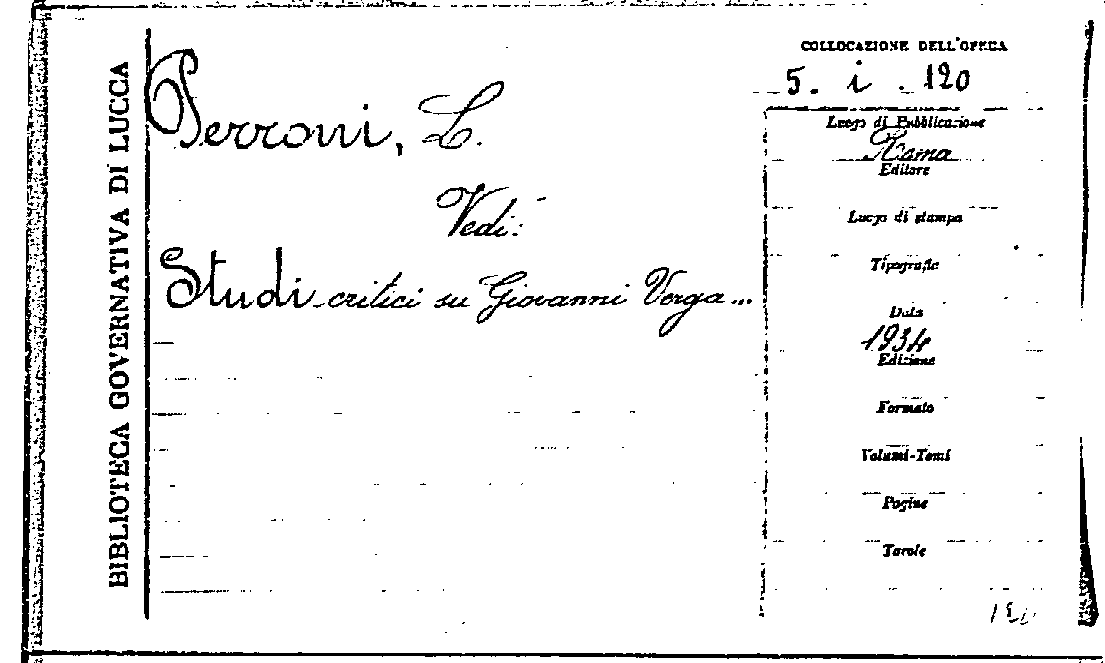 BIBLIOTECA GOVERNATIVA DI LUCCA
Perroni, L.
Vedi:
Studi critici su Giovanni Verga...
COLLOCAZIONE DELL'OPERA
5. i. 120
Luogo di Pubblicazione
Roma
Editore
Luogo di stampa
Tipografia
Data
1934
Edizione
Formato
Volumi-Tomi
Pagine
Tavole